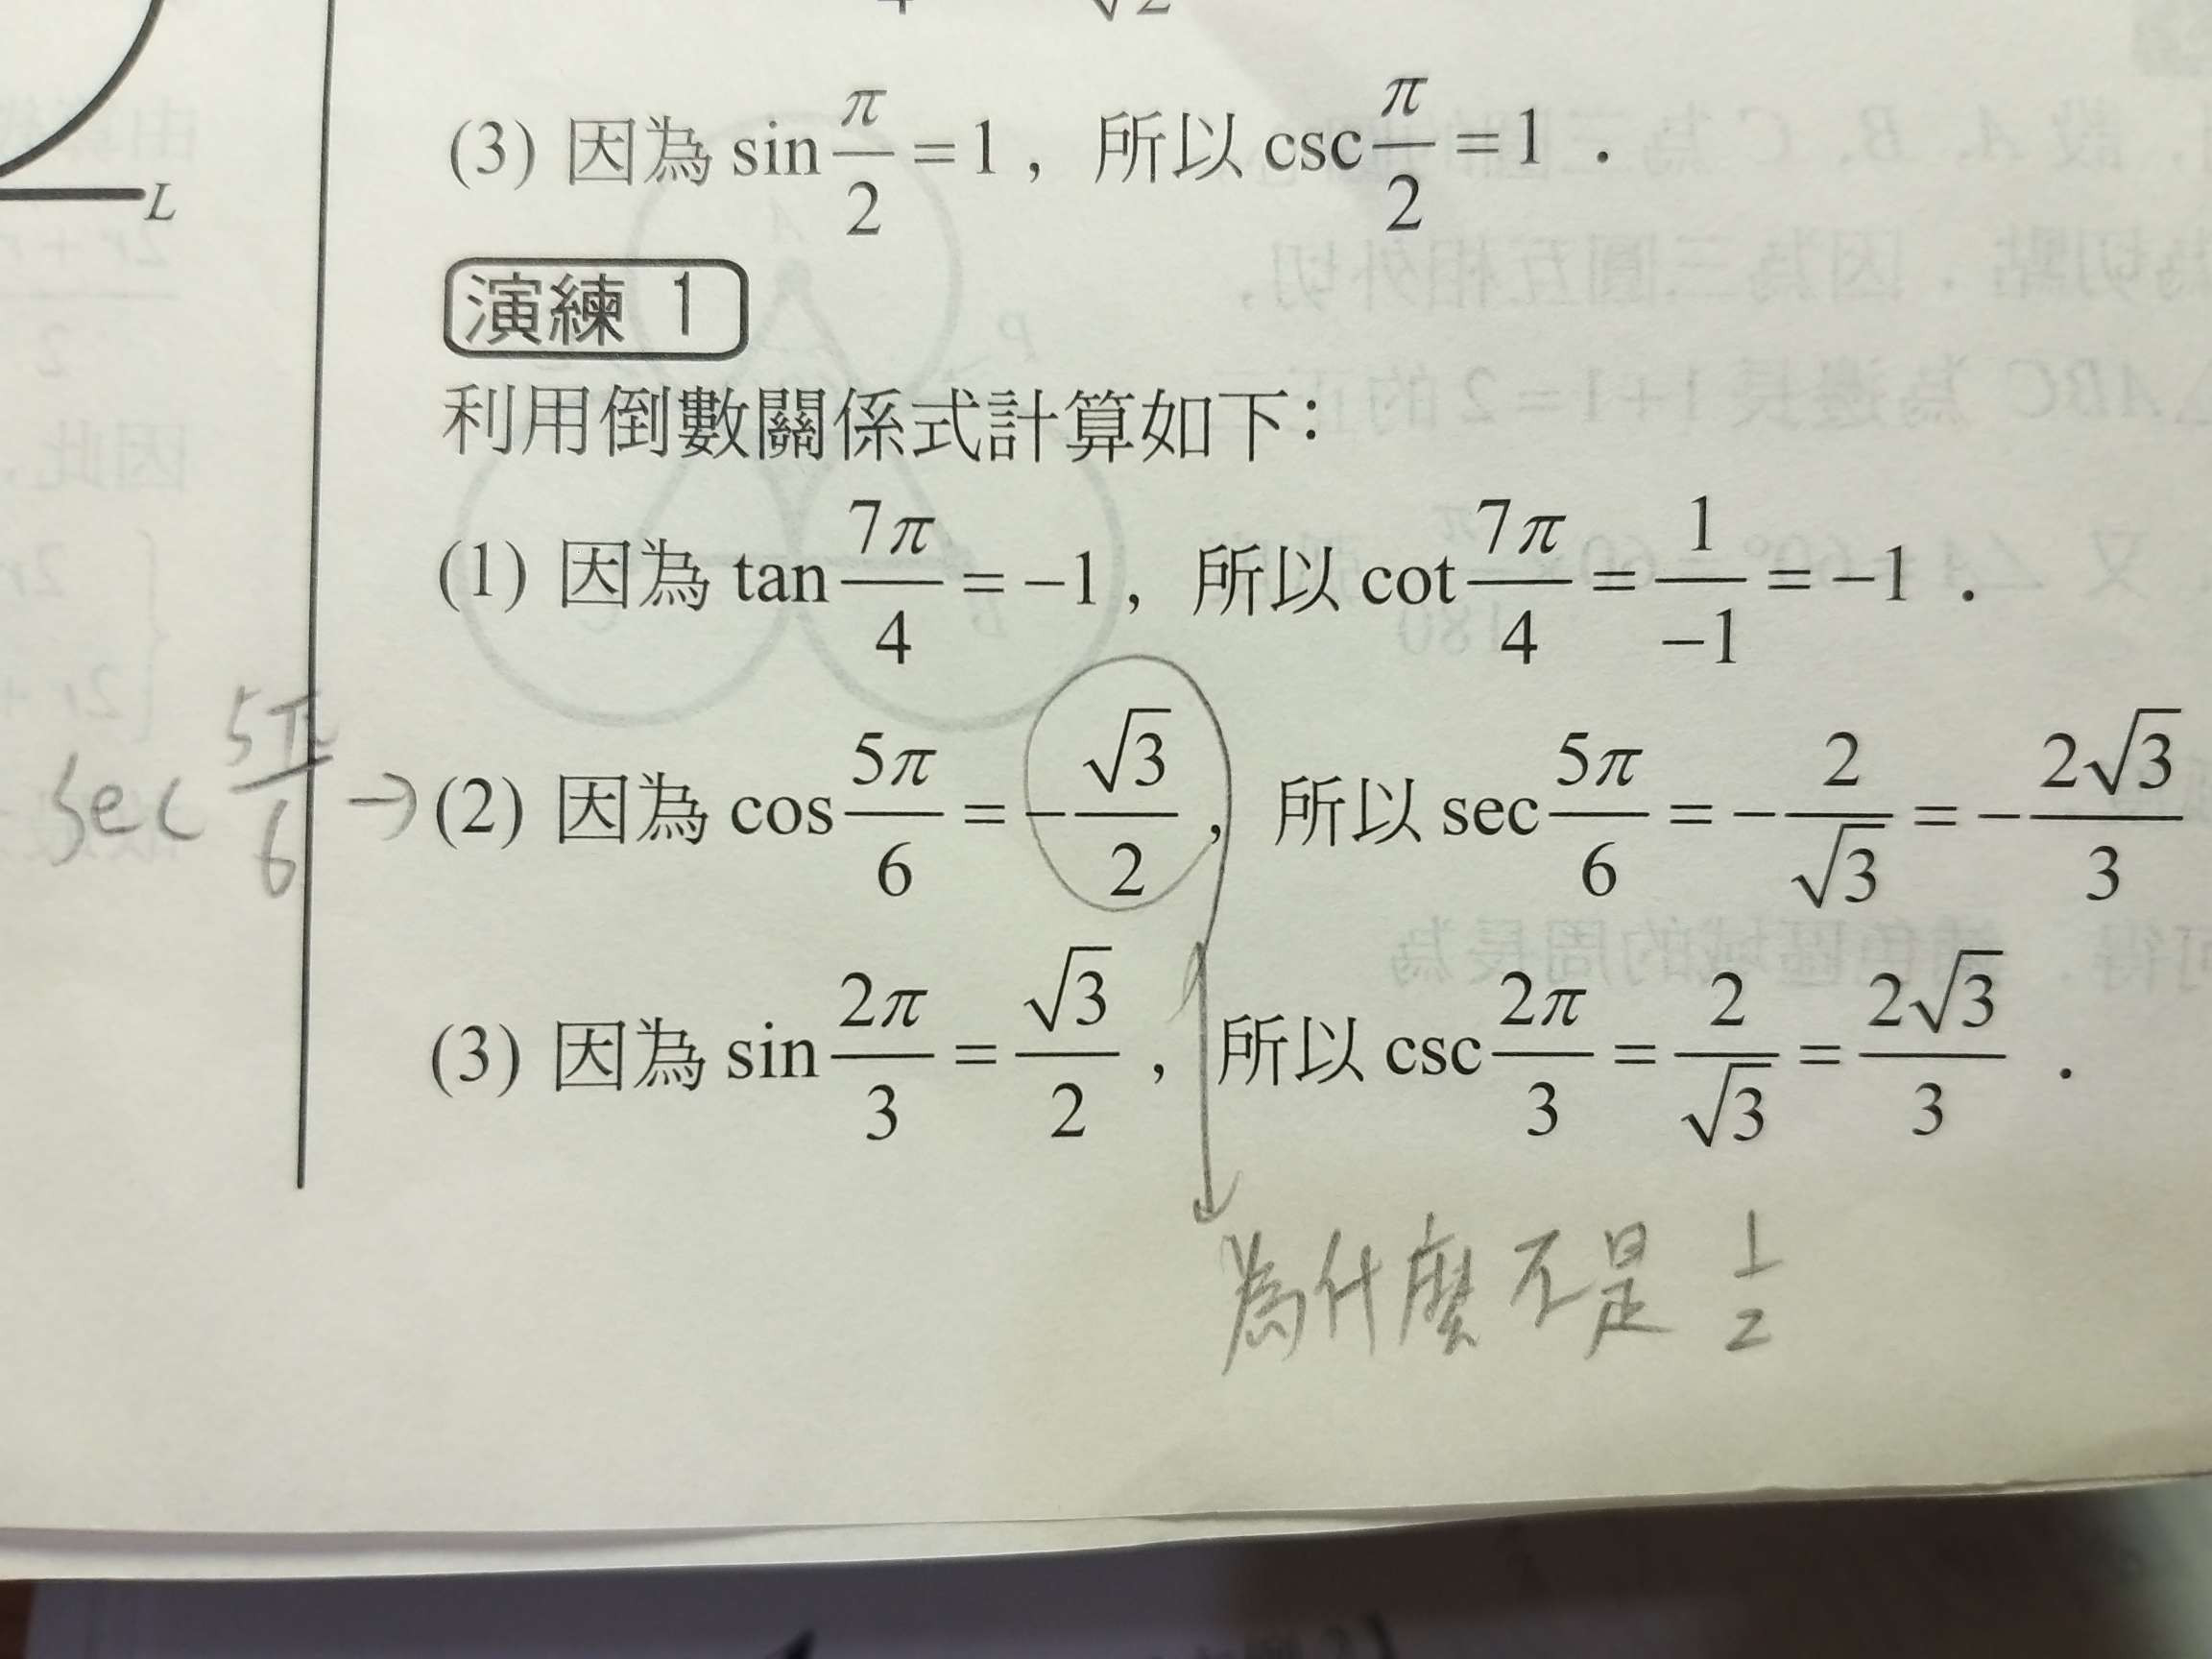 L
(3) 因為 sin π/2 = 1, 所以 csc π/2 = 1.
演練 1
利用倒數關係式計算如下:
(1) 因為 tan 7π/4 = −1, 所以 cot 7π/4 = 1/−1 = −1.
sec 5π/6 → (2) 因為 cos 5π/6 = −√3/2, 所以 sec 5π/6 = −2/√3 = −2√3/3
(3) 因為 sin 2π/3 = √3/2, 所以 csc 2π/3 = 2/√3 = 2√3/3.
為什麼不是 1/2